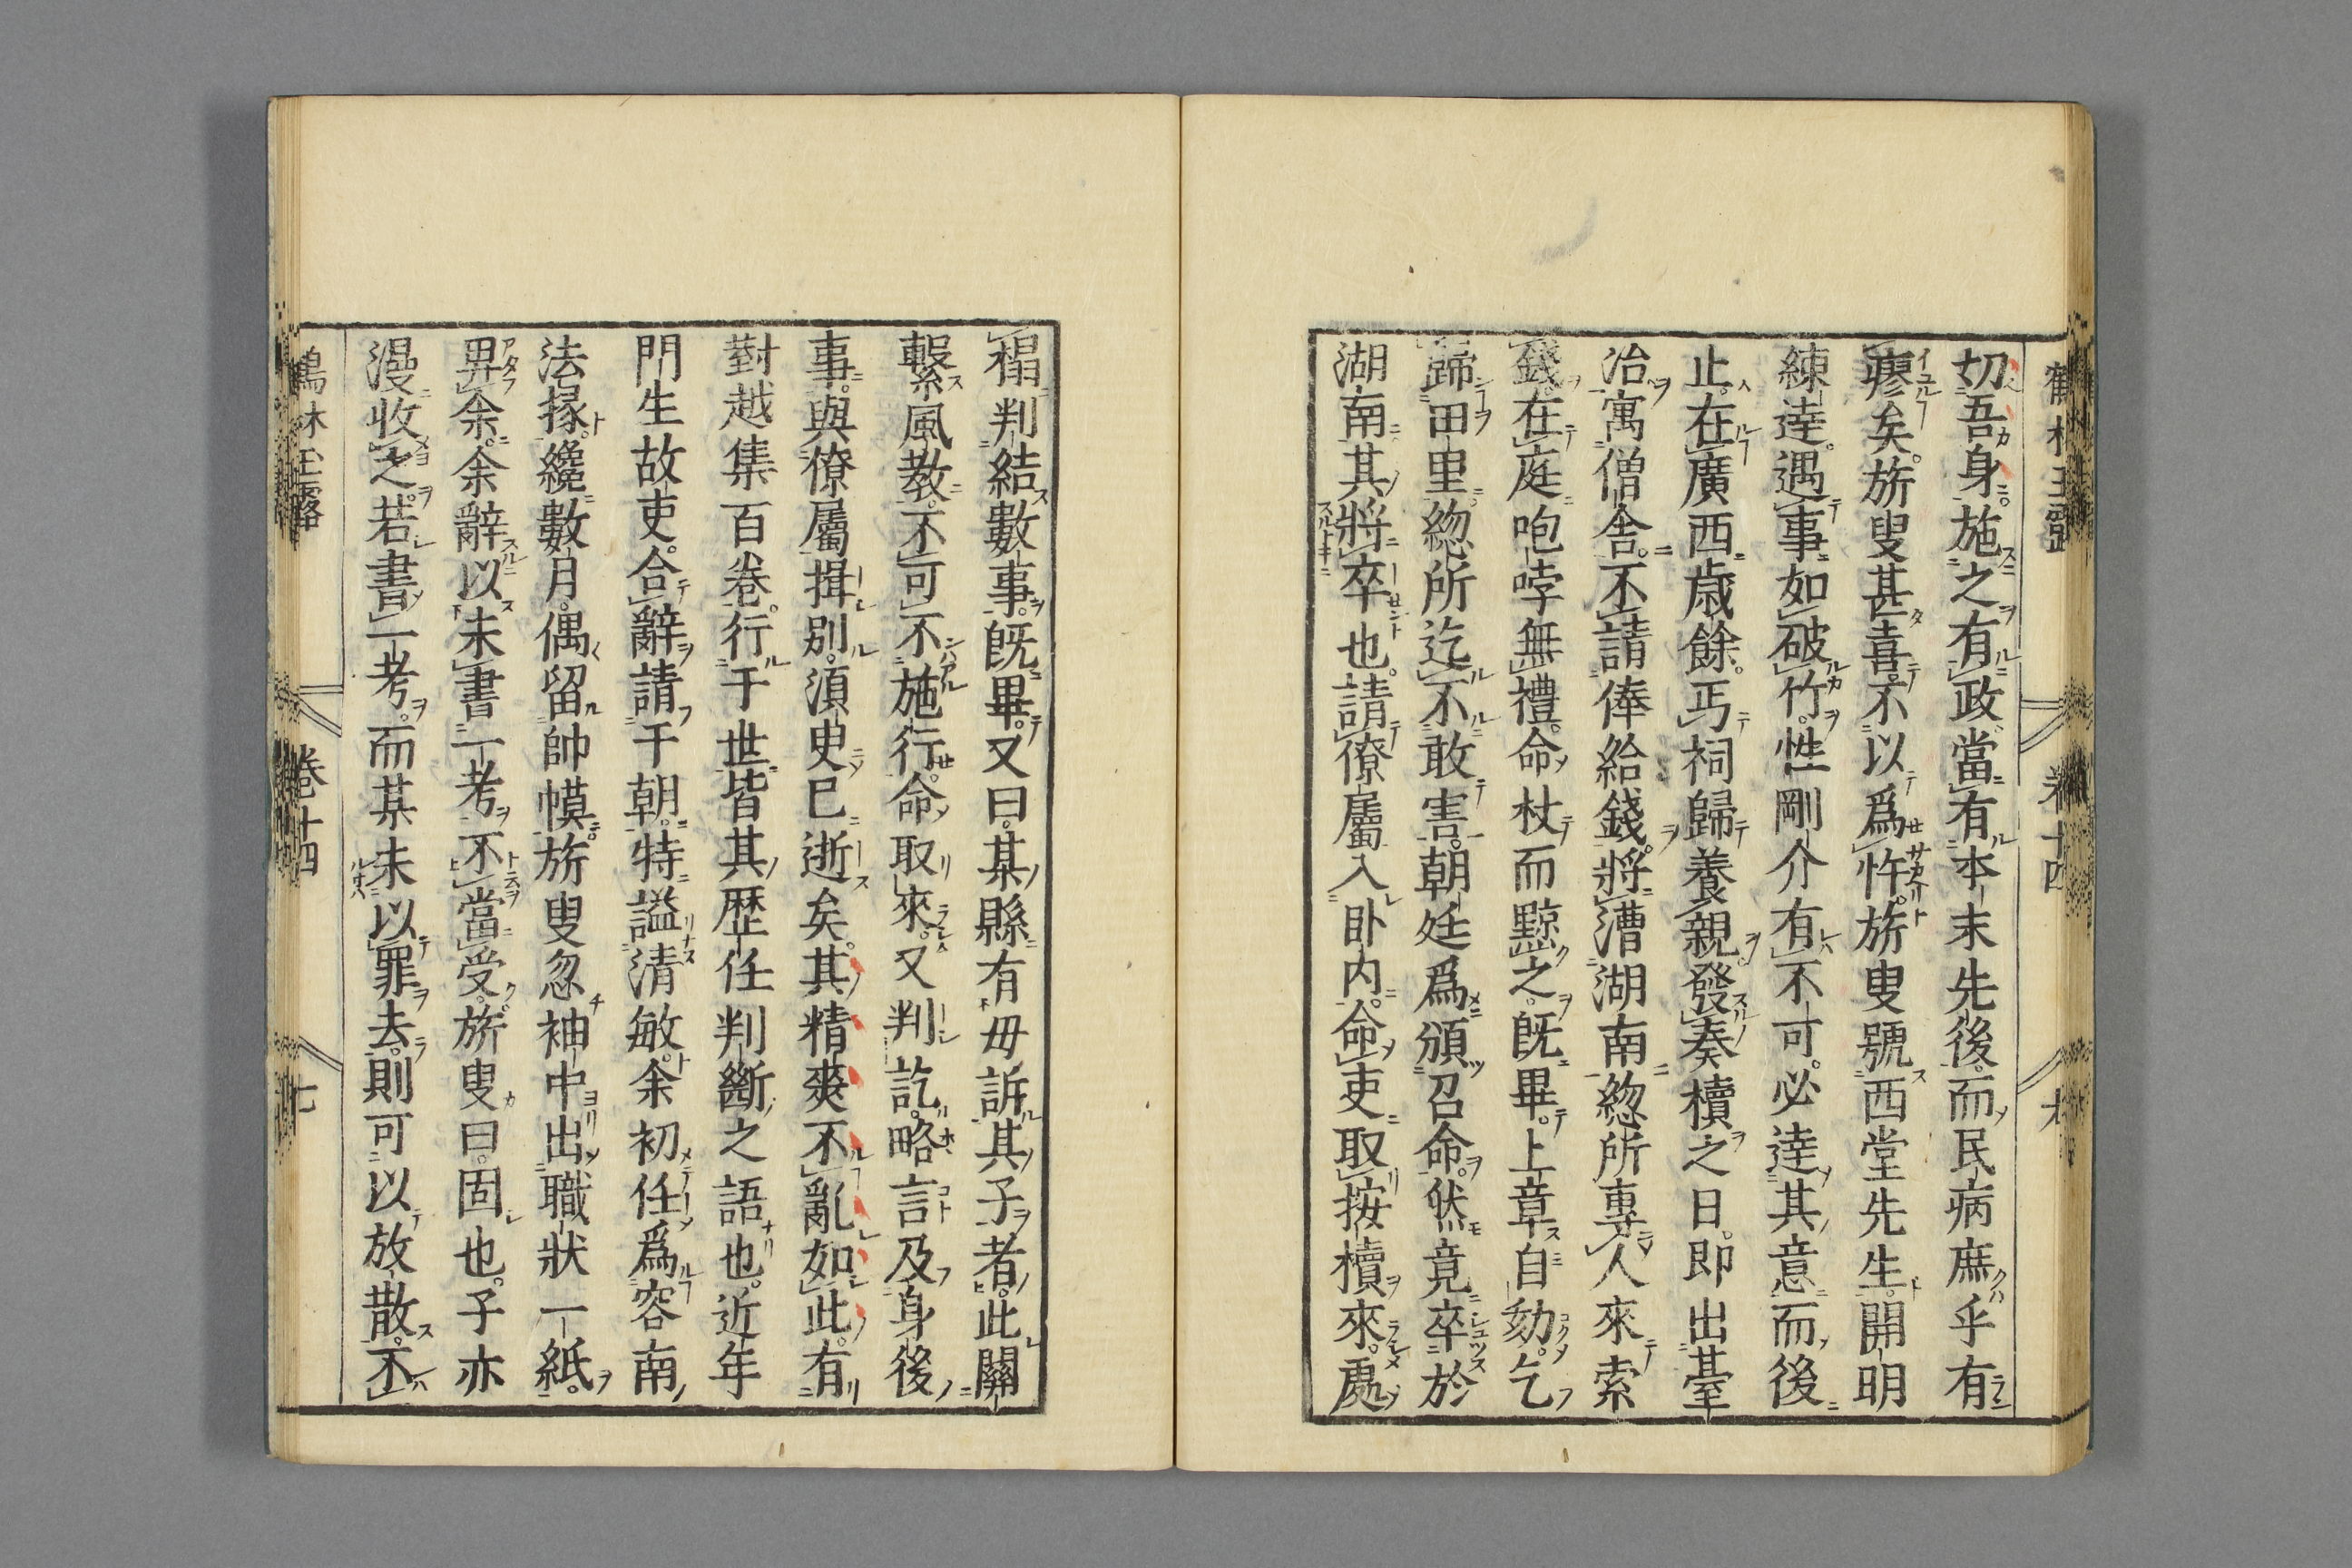 鶴林玉露 卷十四
切吾身施之有政當有本末先後而民病庶乎有
瘳矣旂叟甚喜不以爲忤旂叟號西堂先生開明
練達遇事如破竹性剛介有不可必達其意而後
止在廣西歲餘丐祠歸養親發奏櫝之日即出臺
治寓僧舍不請俸給錢將漕湖南緫所專人來索
錢在庭咆哮無禮命杖而黥之旣畢上章自劾乞
歸田里緫所迄不敢害朝廷爲頒召命然竟卒於
湖南其將卒也請僚屬入卧內命吏取按櫝來處
裼判結數事旣畢又曰某縣有毋訴其子者此關
繫風教不可不施行命取來又判訖略言及身後
事與僚屬揖別須史已逝矣其精爽不亂如此有
對越集百卷行于世皆其歷任判斷之語也近年
門生故吏合辭請于朝特謚清敏余初任爲容南
法掾纔數月偶留帥幙旂叟忽袖中出職狀一紙
畀余余辭以未書一考不當受旂叟曰固也子亦
漫收之若書一考而某未以罪去則可以放散不
鶴林玉露 卷十四 七